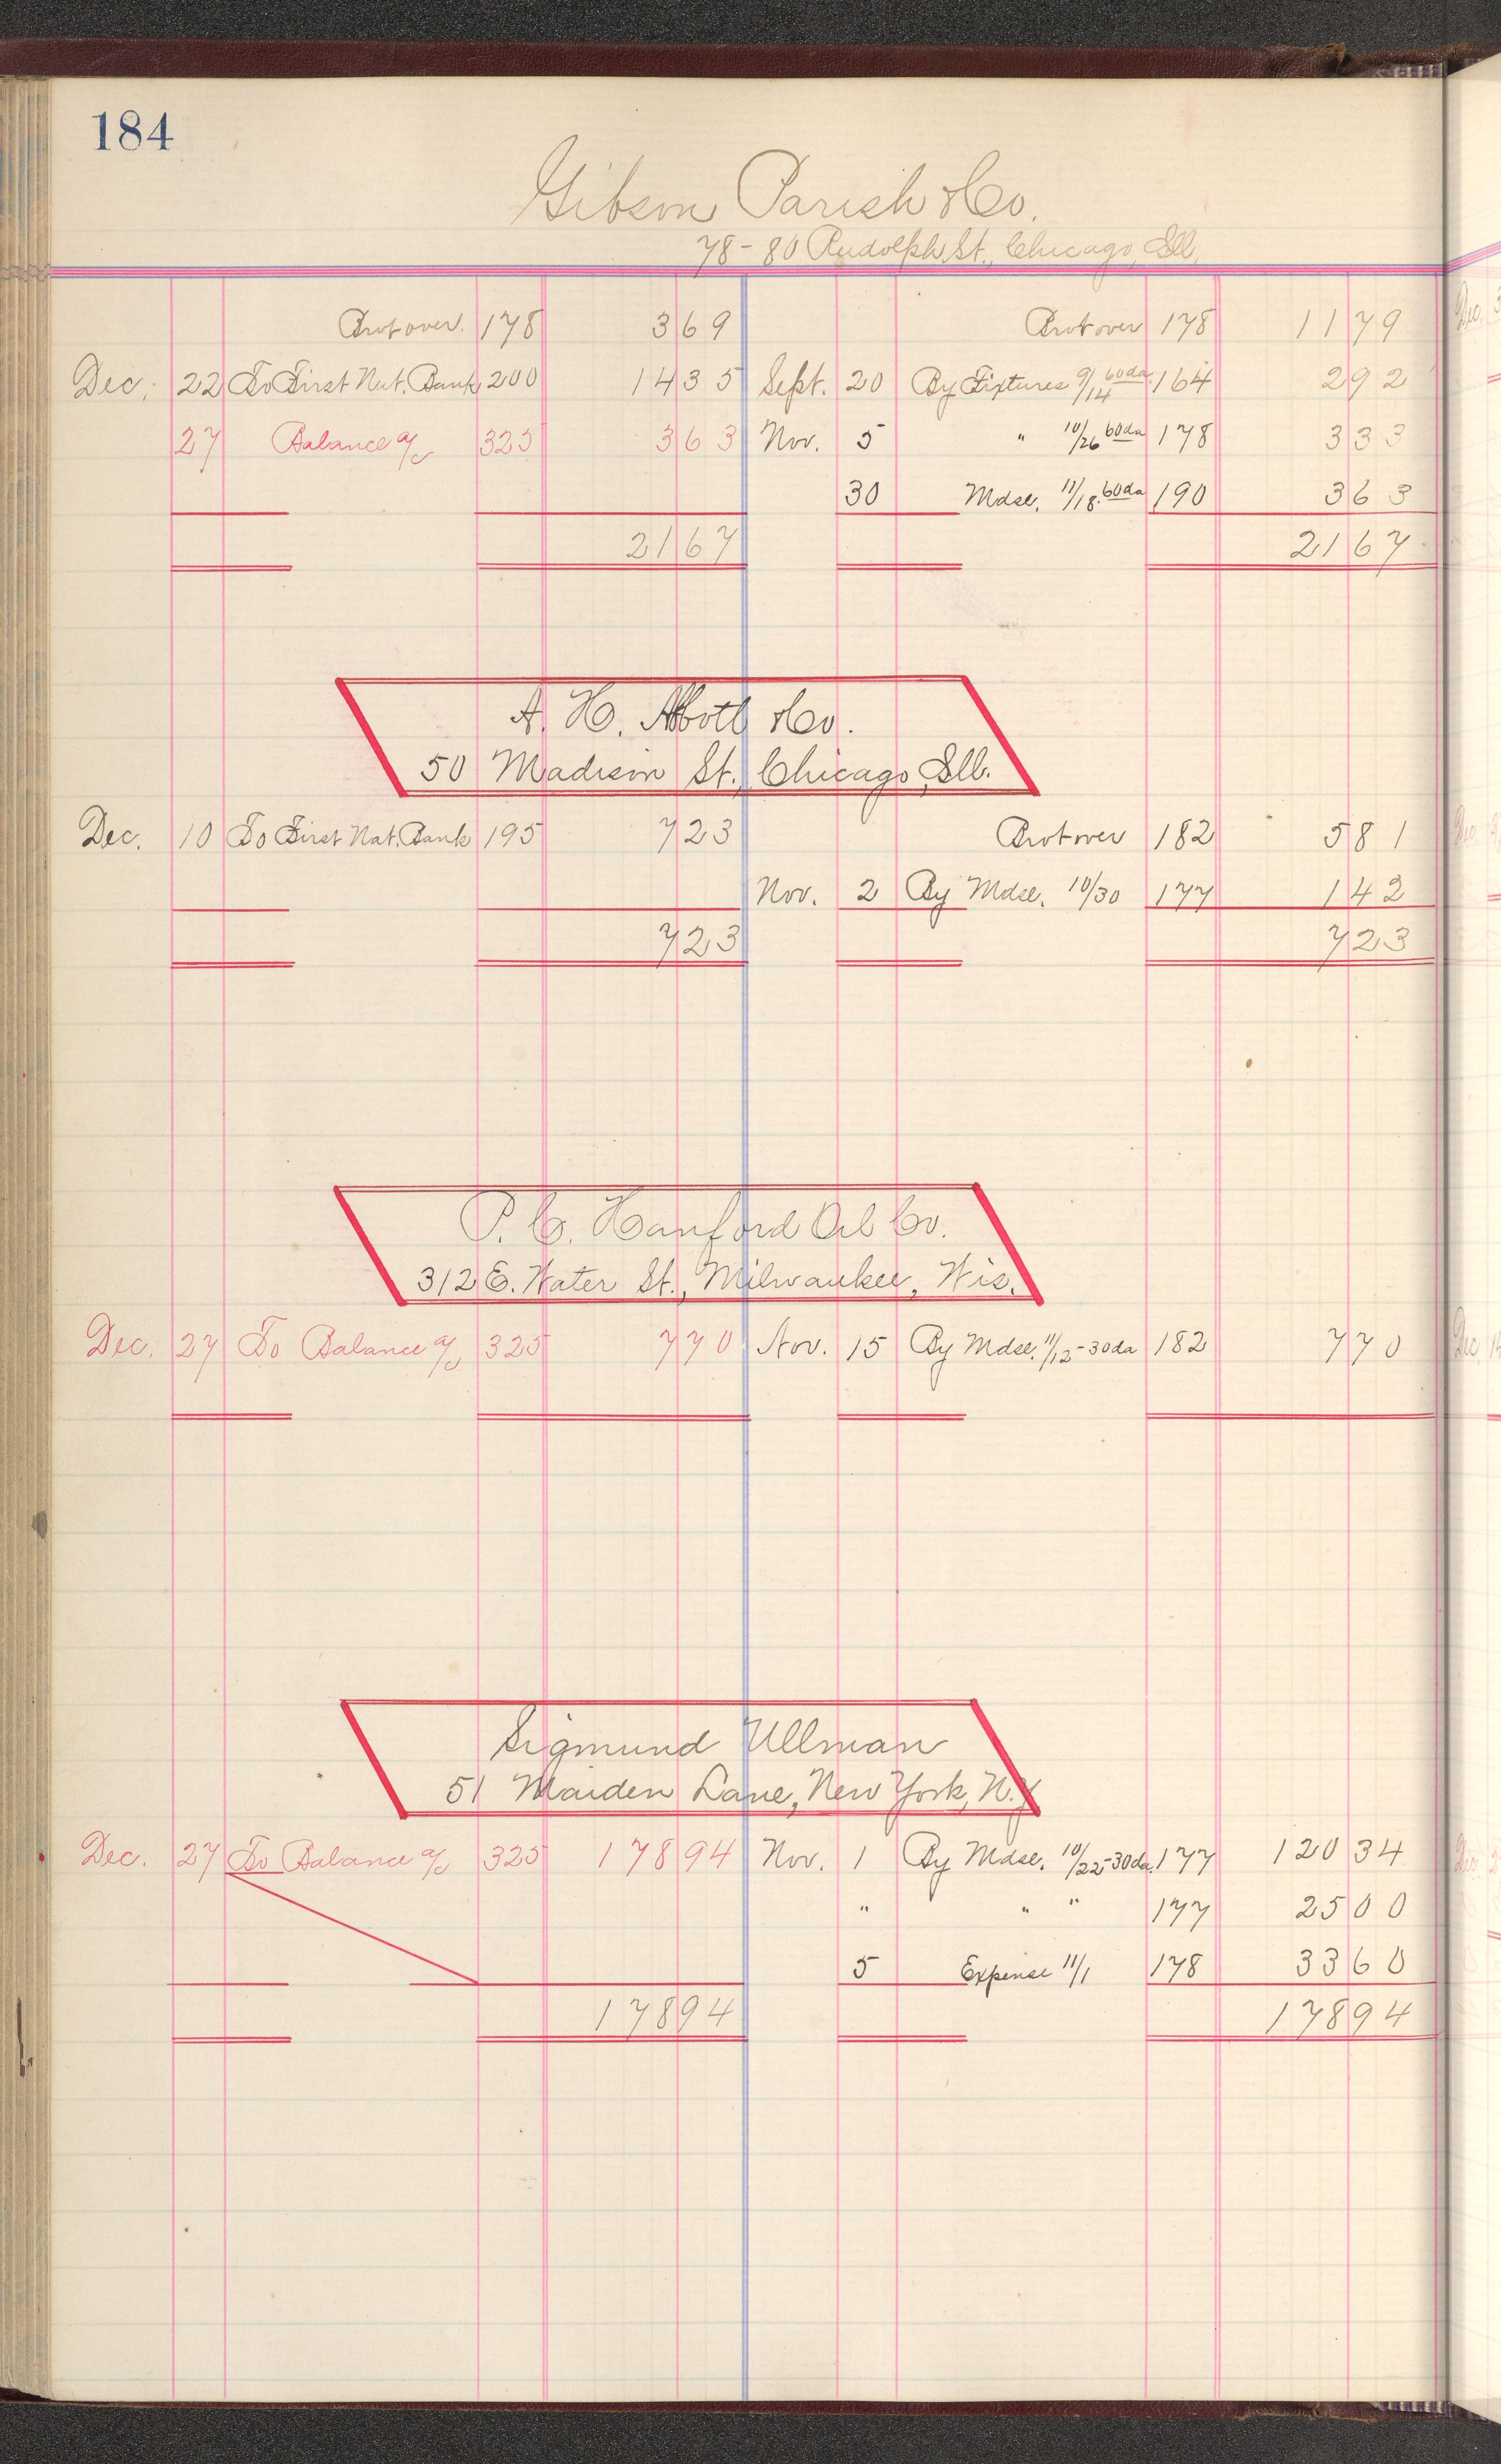 184
Gibson Parish & Co.
78-80 Rudolph St., Chicago, Ill.
Brot over. 178 369 Brot over 178 1179
Dec. 22 To First Nat. Bank 200 1435 Sept. 20 By Fixtures 9/14 60da. 164 292
27 Balance a/c 325 363 Nov. 5 " 10/26 60da 178 333
30 Mdse. 11/18. 60da 190 363
2167 2167
A. H. Abbott & Co.
50 Madison St., Chicago, Ill.
Dec. 10 To First Nat. Bank 195 723 Brot over 182 581
Nov. 2 By Mdse. 10/30 177 142
723 723
P. C. Hanford Oil Co.
312 E. Water St., Milwaukee, Wis.
Dec. 27 To Balance a/c 325 770 Nov. 15 By Mdse. 11/12-30da 182 770
Sigmund Ullman
51 Maiden Lane, New York, N.Y
Dec. 27 To Balance a/c 325 17894 Nov. 1 By Mdse. 10/22-30da. 177 12034
" " " 177 2500
5 Expense 11/1 178 3360
17894 17894